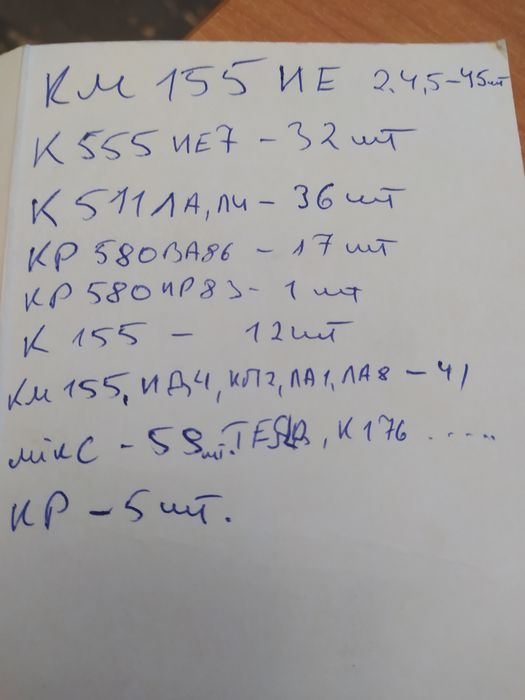 КМ 155 ИЕ 2,4,5-45шт
К 555 ИЕ7 - 32 шт
К 511 ЛА, ЛИ - 36 шт
КР 580ВА86 - 17 шт
КР 580ИР83 - 1 шт
К 155 - 12шт
КМ 155, ИД4, КП2, ЛА1, ЛА8 - 41
мікс - 58 шт. , К176 ......
КР - 5 шт.